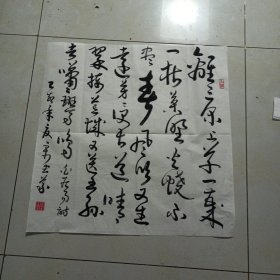 離〻原上草一歲
一枯榮野火燒不
盡春風吹又生
遠芳侵古道晴
翠接荒城又送王孫
去萋〻滿別情 白居易詩
年夏